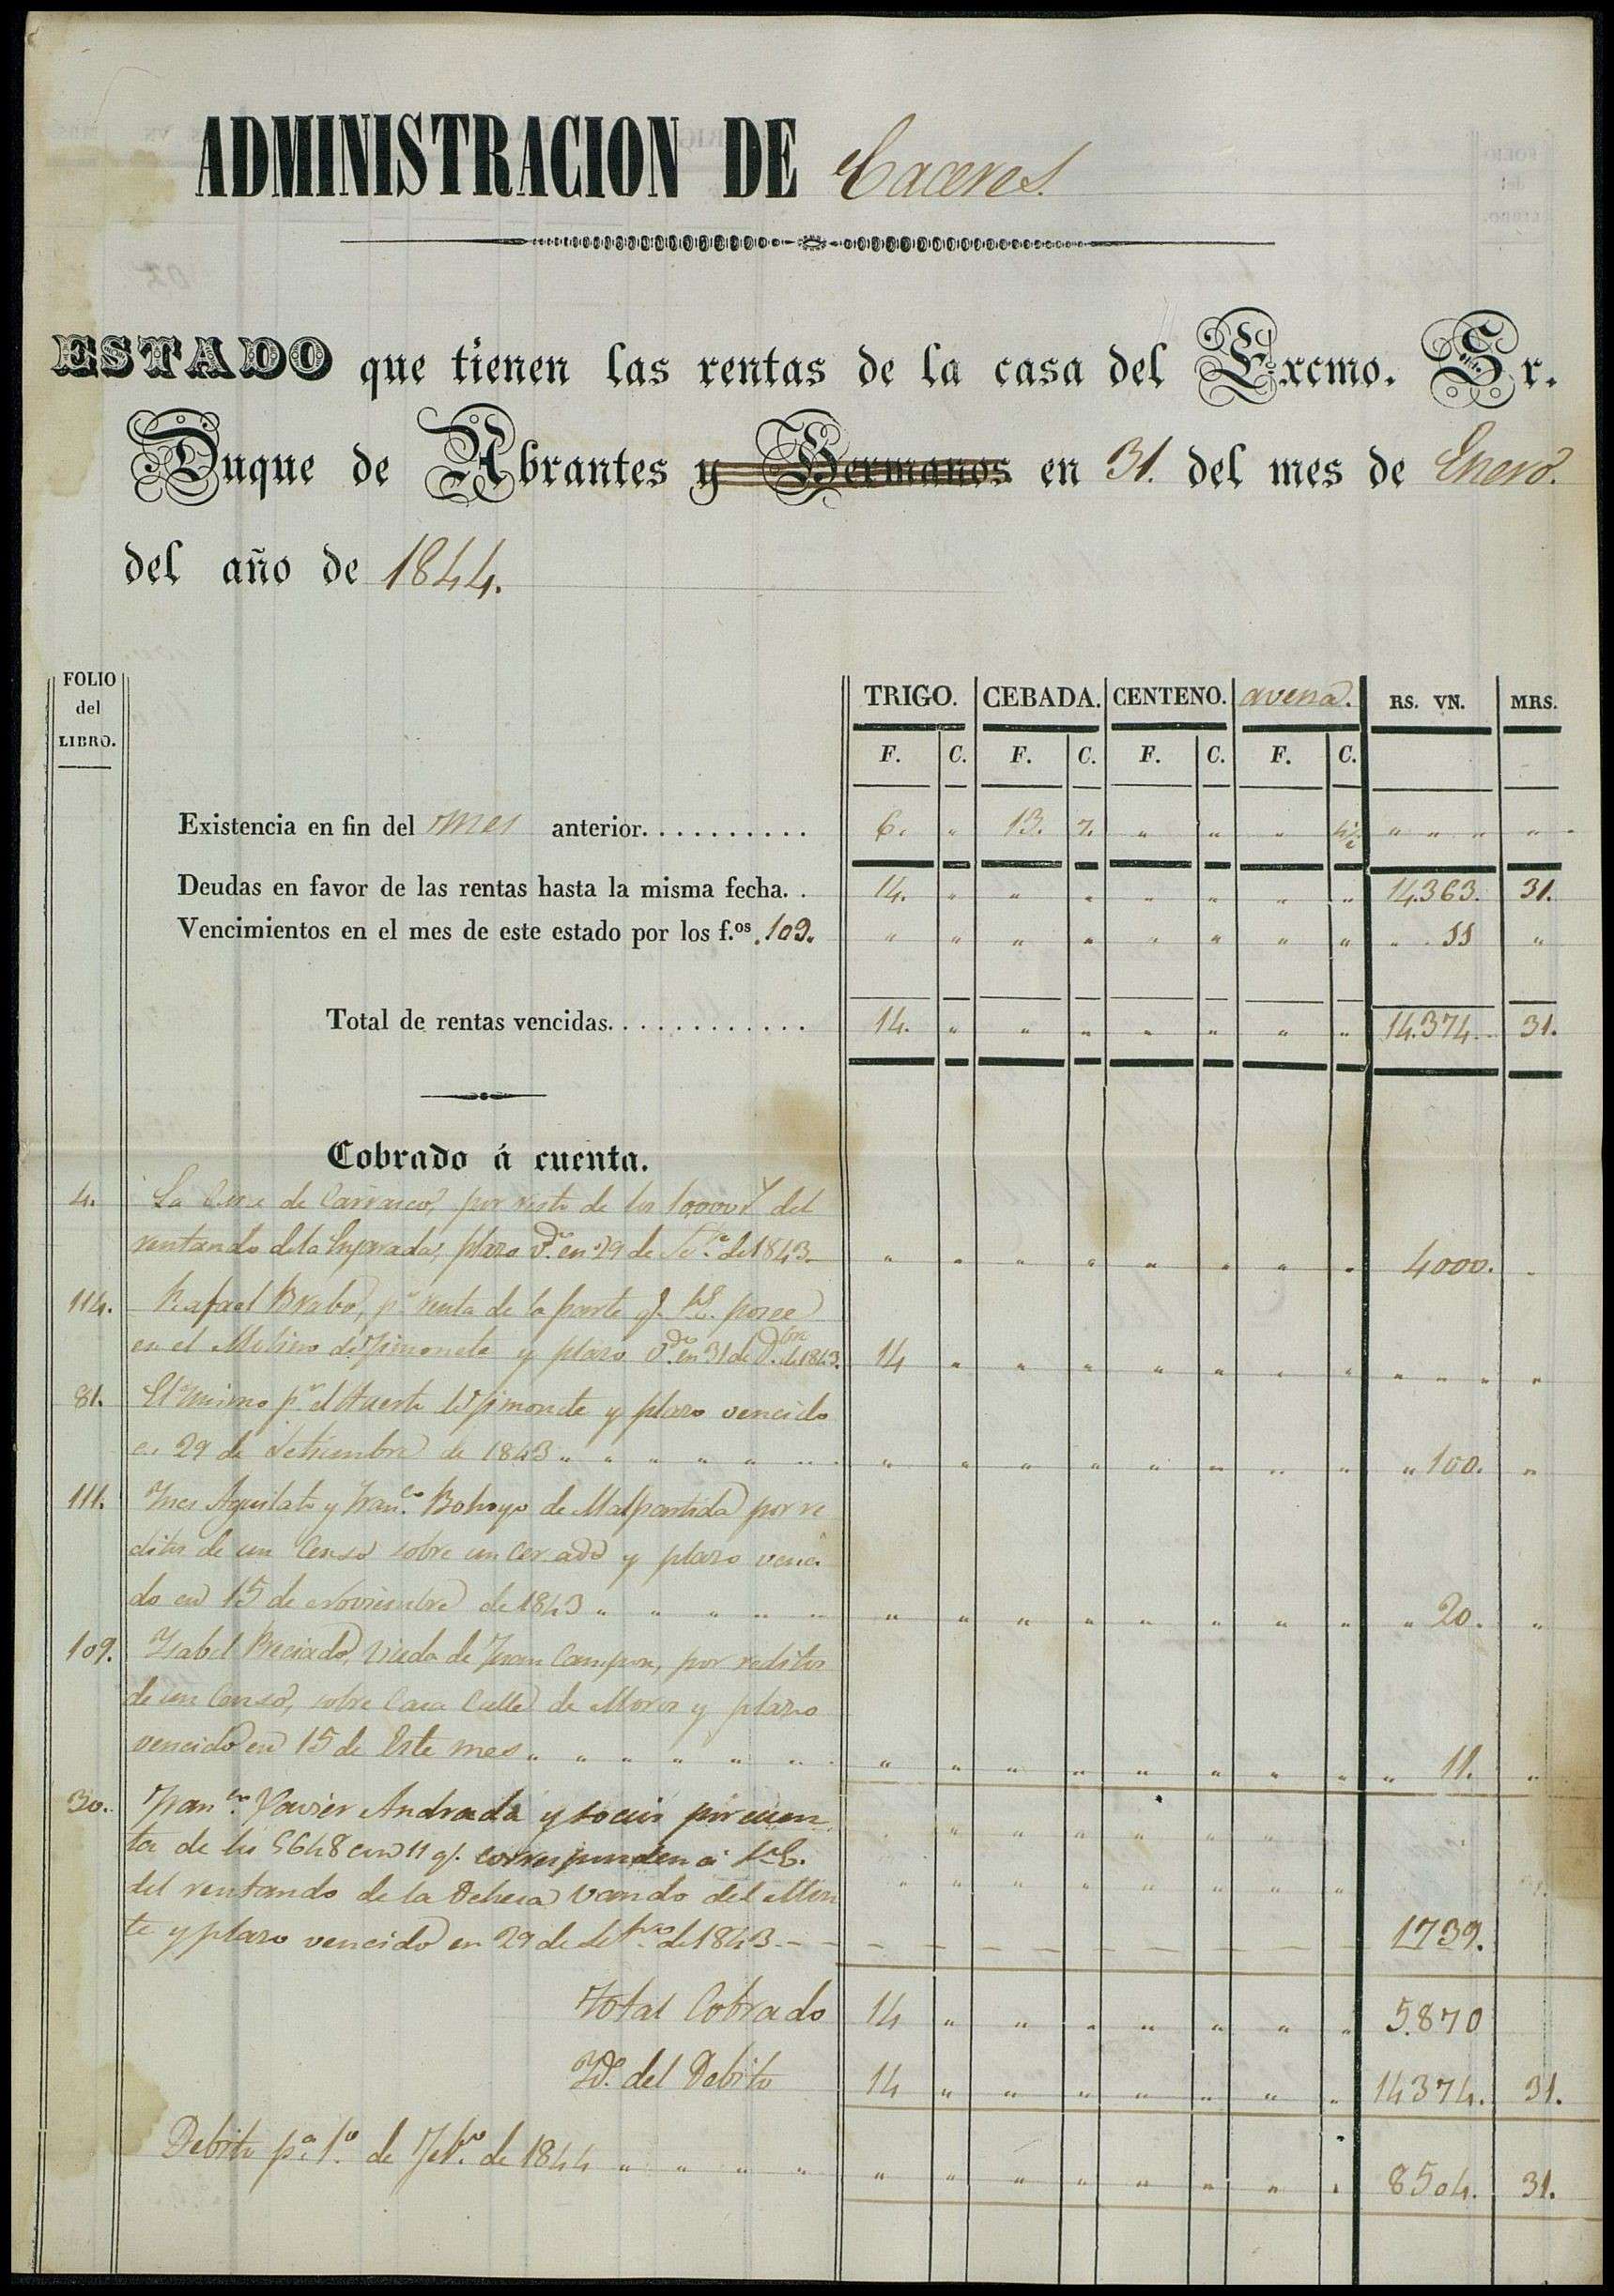 ADMINISTRACION DE Caceres.
ESTADO que tienen las rentas de la casa del Excmo. Sr.
Duque de Abrantes y Hermanos en 31. del mes de Enero.
del año de 1844.
FOLIO del LIBRO. TRIGO. CEBADA. CENTENO. avena. RS. VN. MRS.
F. C. F. C. F. C. F. C.
Existencia en fin del mes anterior. . . . . . . . . . 6. " 13. 7. " " " " " " "
Deudas en favor de las rentas hasta la misma fecha. . 14. " " " " " " " 14.363. 31.
Vencimientos en el mes de este estado por los f.os 109. " " " " " " " " " 11 "
Total de rentas vencidas. . . . . . . . . . . . 14. " " " " " " " 14.374. 31.
Cobrado á cuenta.
4. La de Carrasco, por resto de los 10,000 r del
rentando de la plazo v.do en 29 de Set.e de 1843. " " " " " " " " 4000. "
114. Rafael Brabo, p.r renta de la parte q.e S.E. posee
en el Molino de Jimonete y plazo v.do en 31 de D.bre de 1843. 14 " " " " " " " " " " "
81. El mismo p.r el Huerto de Jimonete y plazo vencido
en 29 de Setiembre de 1843 " " " " " " " " " " " " " " " 100. "
111. Ines y Fran.co Bohoyo de Malpartida por re
ditos de un Censo sobre un cercado y plazo venci
do en 15 de Noviembre de 1843 " " " " " " " " " " " " " " 20. "
109. Ysabel Preciado, Viuda de Juan Campon, por reditos
de un Censo, sobre Casa Calle de Moros y plazo
vencido en 15 de Este mes " " " " " " " " " " " " " " " 11. "
30. Fran.co Xavier Andrada y socios por cuen
ta de los 5648 con 11 q.e corresponden á S.E.
del rentando de la Dehesa Vando del Mon
te y plazo vencido en 29 de Set.bre de 1843. - - 1739.
Total Cobrado 14 " " " " " " " 5.870
Yd. del Debito 14 " " " " " " " 14374. 31.
Debito p.a 1.o de Feb.ro de 1844 " " " " " " " " " " " " 8504. 31.